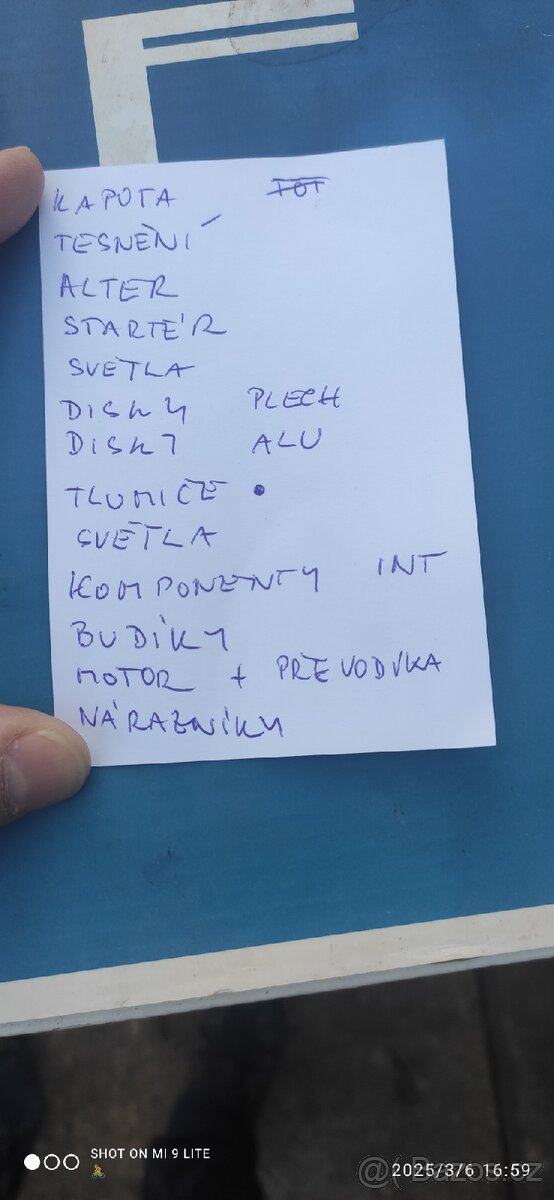 KAPOTA FOT
TESNĚNÍ
ALTER
STARTÉR
SVĚTLA
DISKY PLECH
DISKY ALU
TLUMIČE •
SVĚTLA
KOMPONENTY INT
BUDÍKY
MOTOR + PŘEVODVKA
NÁRAZNÍKY
SHOT ON MI 9 LITE
2025/3/6 16:59
@Bazos.cz